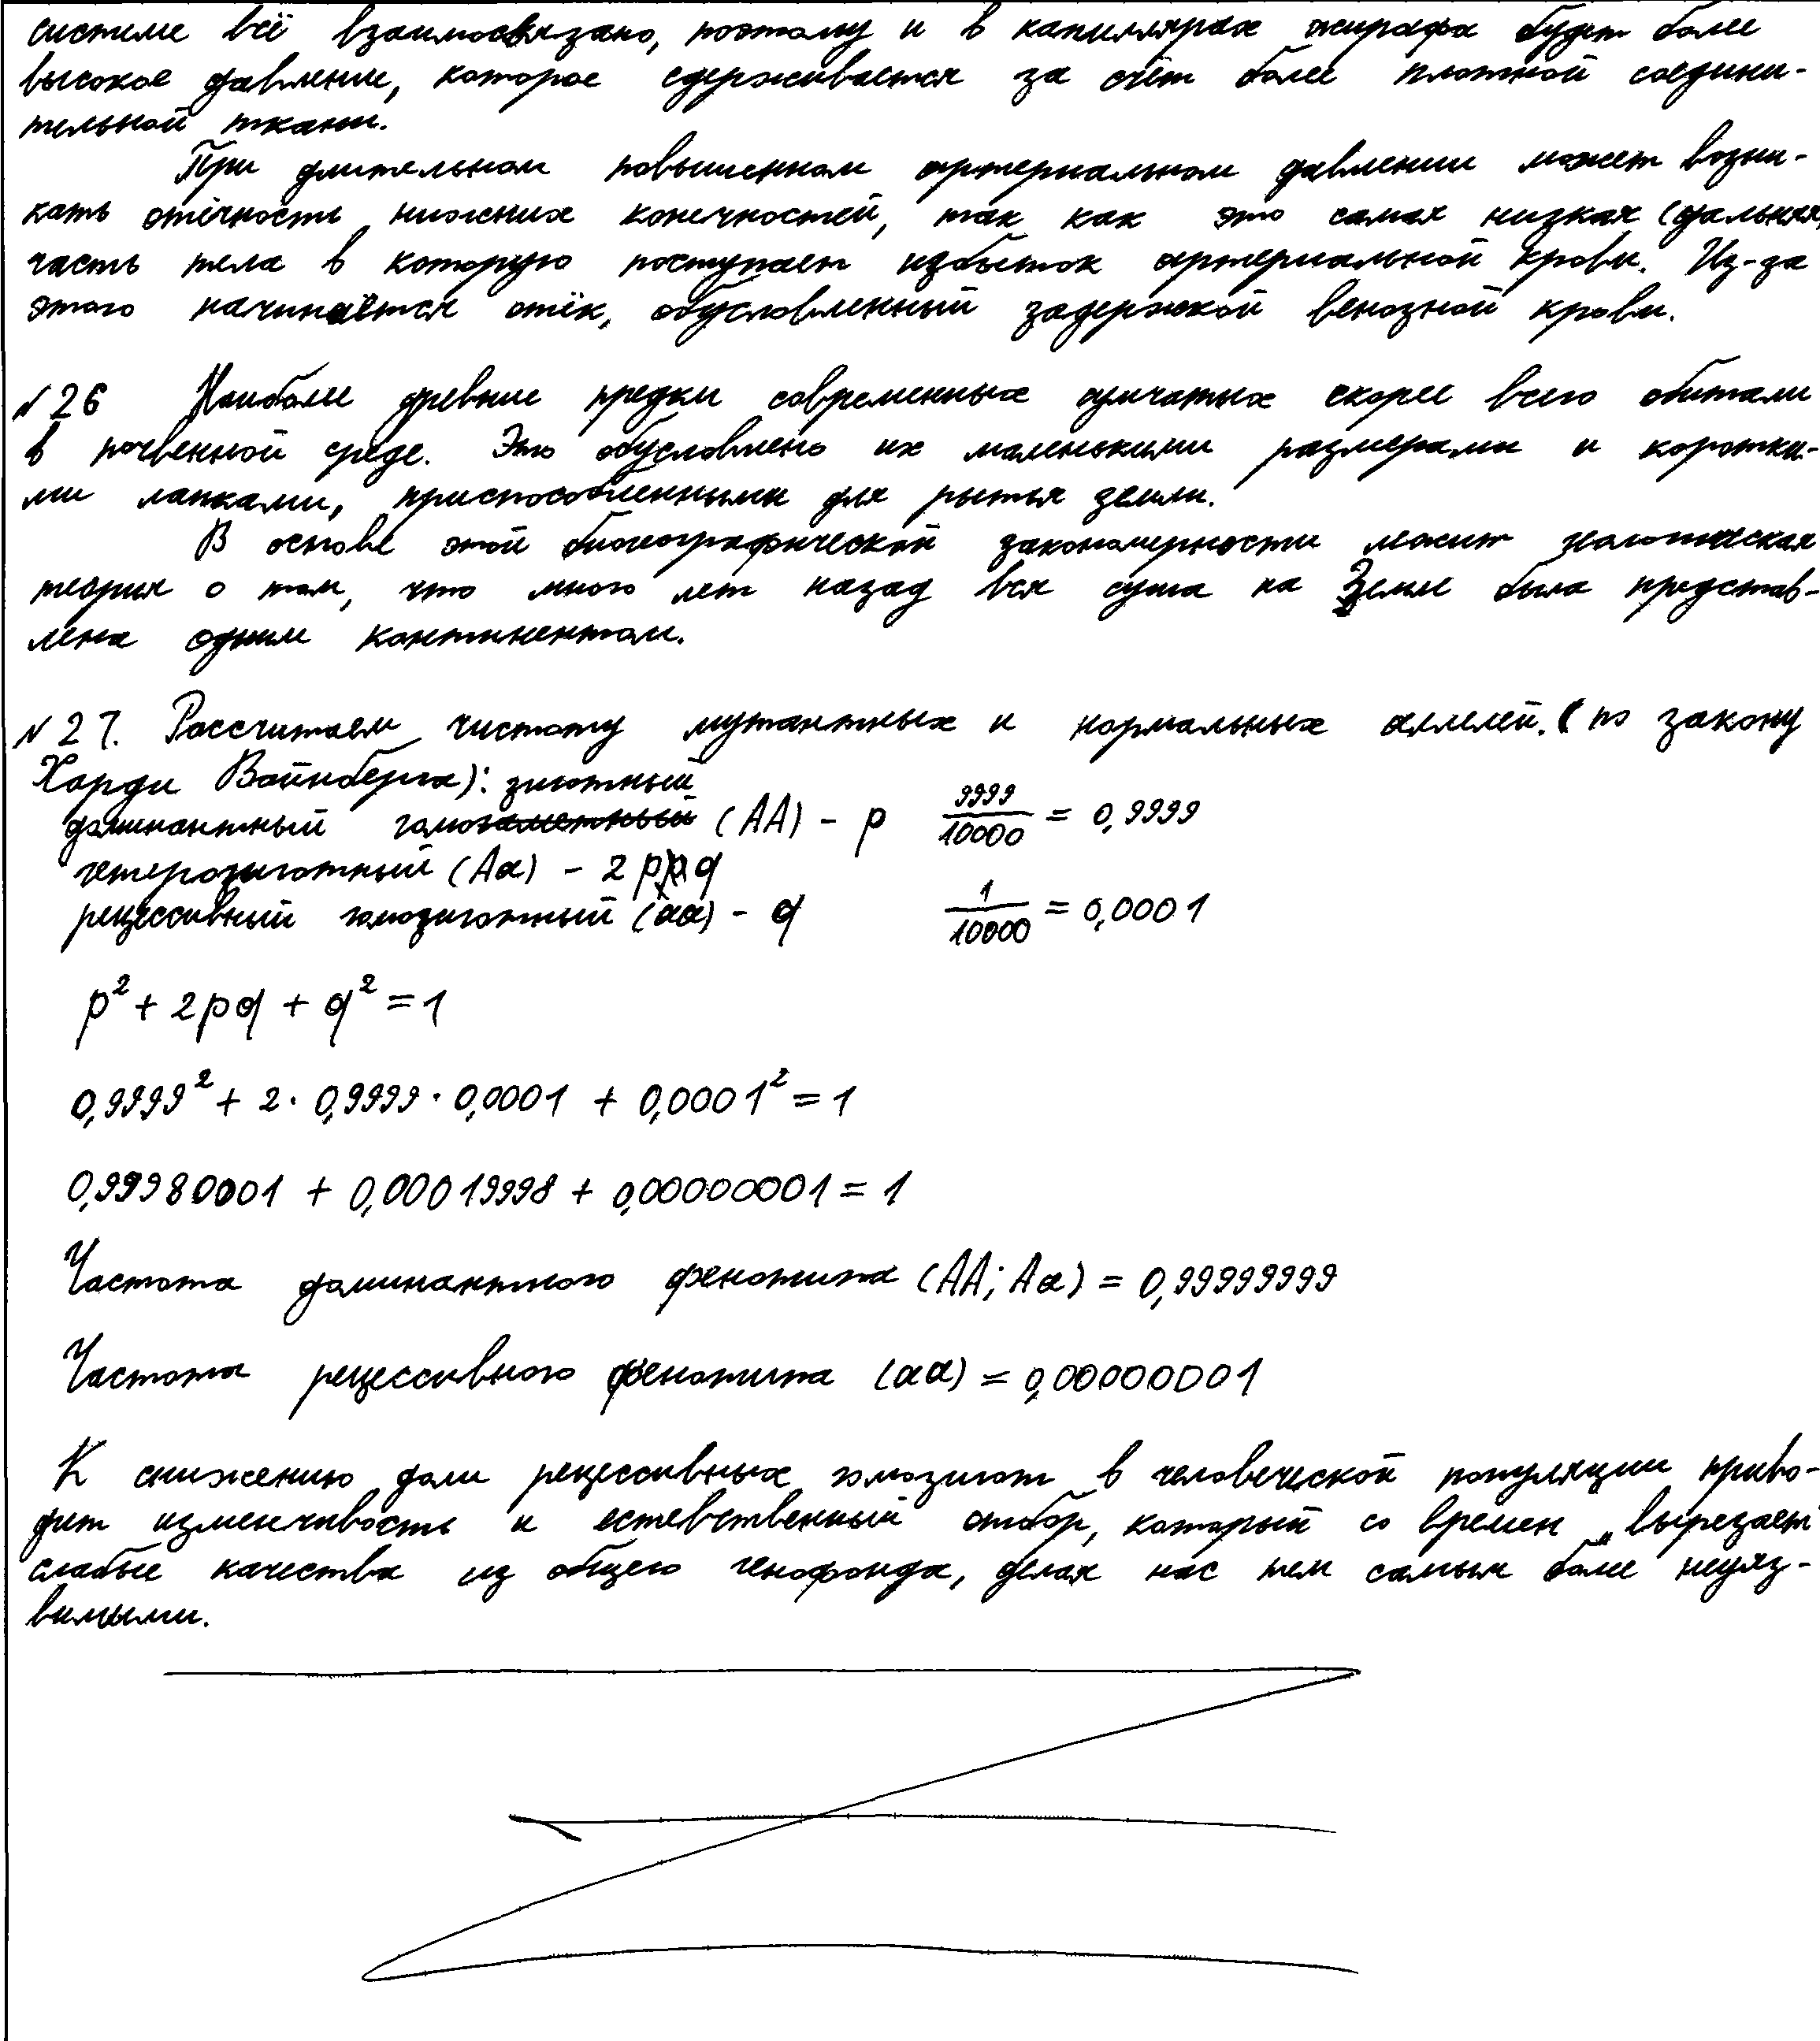 системе всё взаимосвязано, поэтому и в капиллярах жирафа будет более
высокое давление, которое сдерживается за счёт более плотной соедини-
тельной ткани.
При длительном повышенном артериальном давлении может возни-
кать отёчность нижних конечностей, так как это самая низкая (дальняя)
часть тела в которую поступает избыток артериальной крови. Из-за
этого начинается отёк, обусловленный задержкой венозной крови.
№26 Наиболее древние предки современных сумчатых скорее всего обитали
в почвенной среде. Это обусловлено их маленькими размерами и коротки-
ми лапками, приспособленными для рытья земли.
В основе этой биогеографической закономерности лежит
теория о том, что много лет назад вся суша на Земле была представ-
лена одним континентом.
№27. Рассчитаем частоту мутантных и нормальных аллелей. (по закону
Харди Вайнберга): зиготный
доминантный гомо (АА) - p 9999/10000 = 0,9999
гетерозиготный (Аа) - 2pq
рецессивный гомозиготный (аа) - q 1/10000 = 0,0001
p² + 2pq + q² = 1
0,9999² + 2 · 0,9999 · 0,0001 + 0,0001² = 1
0,99980001 + 0,00019998 + 0,00000001 = 1
Частота доминантного фенотипа (АА; Аа) = 0,99999999
Частота рецессивного фенотипа (аа) = 0,00000001
К снижению доли рецессивных гомозигот в человеческой популяции приво-
дит изменчивость и естевственный отбор, который со времен „вырезает"
слабые качества из общего генофонда, делая нас тем самым более неуяз-
вимыми.